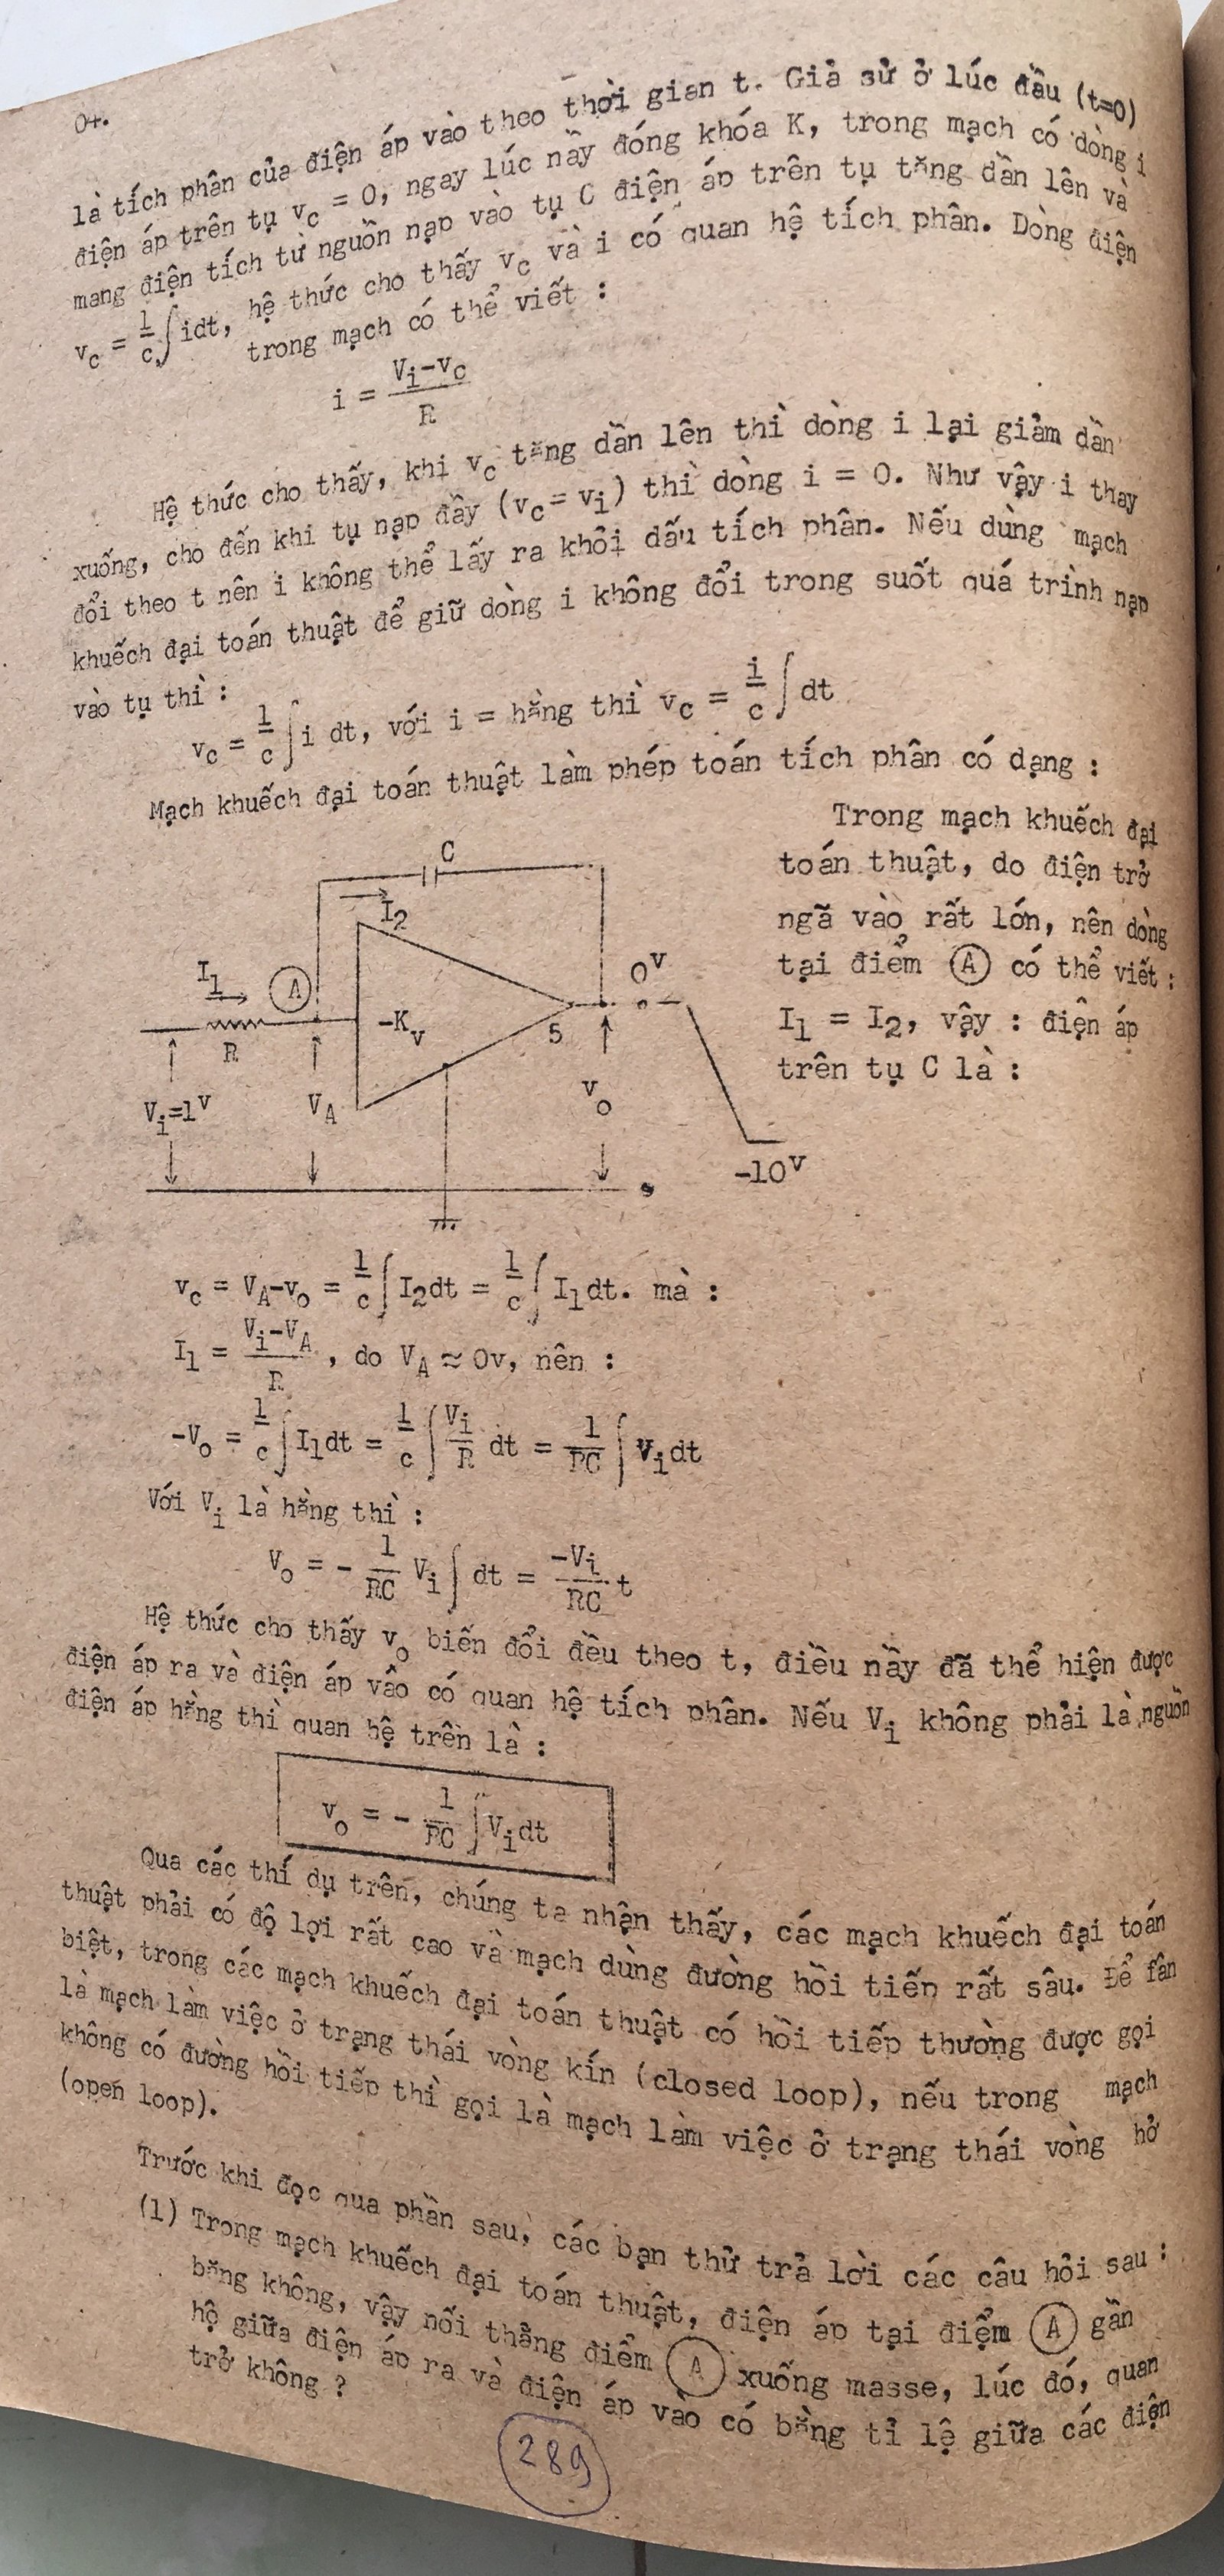 04.
là tích phân của điện áp vào theo thời gian t. Giả sử ở lúc đầu (t=0)
điện áp trên tụ vc = 0, ngay lúc nầy đóng khóa K, trong mạch có dòng i
mang điện tích từ nguồn nạp vào tụ C điện áp trên tụ tăng dần lên và
vc = 1/c ∫idt, hệ thức cho thấy vc và i có quan hệ tích phân. Dòng điện
trong mạch có thể viết :
i = (Vi-vc)/R
Hệ thức cho thấy, khi vc tăng dần lên thì dòng i lại giảm dần
xuống, cho đến khi tụ nạp đầy (vc= vi) thì dòng i = 0. Như vậy i thay
đổi theo t nên i không thể lấy ra khỏi dấu tích phân. Nếu dùng mạch
khuếch đại toán thuật để giữ dòng i không đổi trong suốt quá trình nạp
vào tụ thì :
vc = 1/c ∫i dt, với i = hằng thì vc = i/c ∫ dt
Mạch khuếch đại toán thuật làm phép toán tích phân có dạng :
Trong mạch khuếch đại
toán thuật, do điện trở
ngã vào rất lớn, nên dòng
tại điểm (A) có thể viết :
I1 = I2, vậy : điện áp
trên tụ C là :
C
I2
I1
A
R
-Kv
5
0v
Vi=1v
VA
vo
-10v
vc = VA-vo = 1/c ∫ I2dt = 1/c ∫ I1dt. mà :
I1 = (Vi-VA)/R , do VA ≈ 0v, nên :
-Vo = 1/c ∫ I1dt = 1/c ∫ Vi/R dt = 1/RC ∫ Vidt
Với Vi là hằng thì :
Vo = - 1/RC Vi ∫ dt = -Vi/RC t
Hệ thức cho thấy vo biến đổi đều theo t, điều nầy đã thể hiện được
điện áp ra và điện áp vâo có quan hệ tích phân. Nếu Vi không phải là nguồn
điện áp hằng thì quan hệ trên là :
vo = - 1/RC ∫ Vidt
Qua các thí dụ trên, chúng ta nhận thấy, các mạch khuếch đại toán
thuật phải có độ lợi rất cao và mạch dùng đường hồi tiến rất sâu. Để fân
biệt, trong các mạch khuếch đại toán thuật có hồi tiếp thường được gọi
là mạch làm việc ở trạng thái vòng kín (closed loop), nếu trong mạch
không có đường hồi tiếp thì gọi là mạch làm việc ở trạng thái vòng hở
(open loop).
Trước khi đọc qua phần sau, các bạn thử trả lời các câu hỏi sau :
(1) Trong mạch khuếch đại toán thuật, điện áp tại điểm (A) gần
bằng không, vậy nối thẳng điểm (A) xuống masse, lúc đó, quan
hộ giữa điện áp ra và điện áp vào có bằng tỉ lệ giữa các điện
trở không ?
289